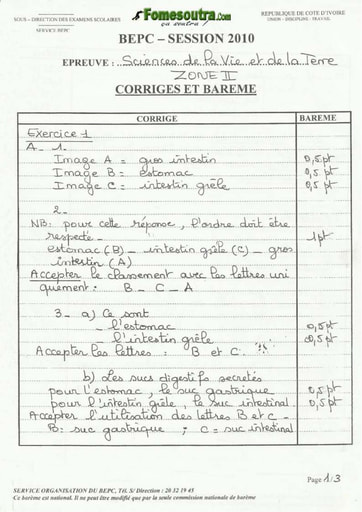 SOUS - DIRECTION DES EXAMENS SCOLAIRES
SERVICE BEPC
Fomesoutra.com
ça soutra !
REPUBLIQUE DE COTE D'IVOIRE
UNION - DISCIPLINE - TRAVAIL
BEPC – SESSION 2010
EPREUVE : Sciences de la Vie et de la Terre
ZONE II
CORRIGES ET BAREME
CORRIGE BAREME
Exercice 1
A - 1 -
Image A = gros intestin 0,5 pt
Image B = estomac 0,5 pt
Image C = intestin grêle 0,5 pt
2 -
NB: pour cette réponse, l'ordre doit être
respecté - 1 pt
estomac (B) _ intestin grêle (C) _ gros
intestin (A)
Accepter le classement avec les lettres uni
quement : B - C - A
3 - a) Ce sont
- l'estomac 0,5 pt
- l'intestin grêle 0,5 pt
Accepter les lettres : B et C.
b) Les sucs digestifs secretés
pour l'estomac, le suc gastrique 0,5 pt
pour l'intestin grêle, le suc intestinal 0,5 pt
Accepter l'utilisation des lettres B et C -
B: suc gastrique ; C = suc intestinal
Page 1/3
SERVICE ORGANISATION DU BEPC, Tél. S/ Direction : 20 32 19 45
Ce barème est national. Il ne peut être modifié que par la seule commission nationale de barème